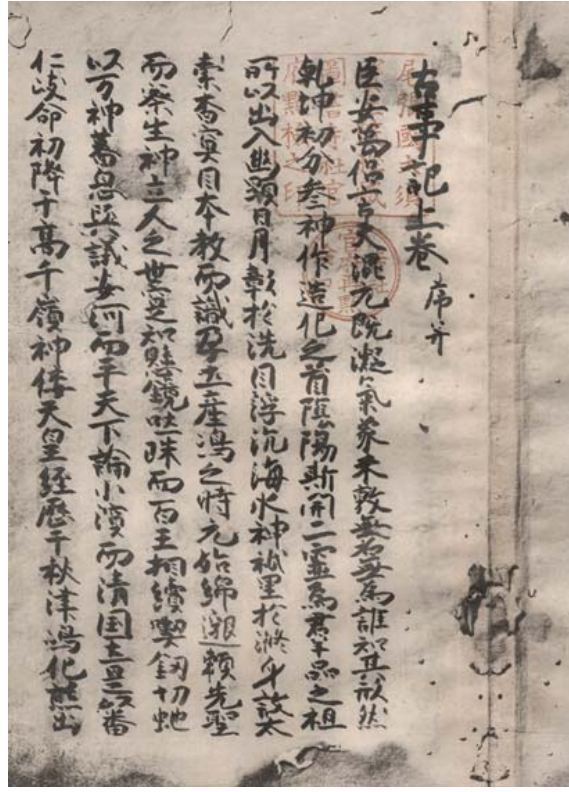 古事記上巻 序并
臣安萬侶言夫混元既凝氣象未敦無名無為誰知其形然
乾坤初分参神作造化之首陰陽斯開二霊為群品之祖
所以出入幽顕日月彰於洗目浮沉海水神祇呈於滌身故太
素杳冥因本教而識孕土産嶋之時元始綿邈頼先聖
而察生神立人之世寔知懸鏡吐珠而百王相續喫釼切蛇
以万神蕃息與議安河而平天下論小濱而清国土是以番
仁岐命初降于高千嶺神倭天皇経歴于秋津嶋化熊出
尾張國大須
寶生院經藏
圖書寺社官
府點檢之印